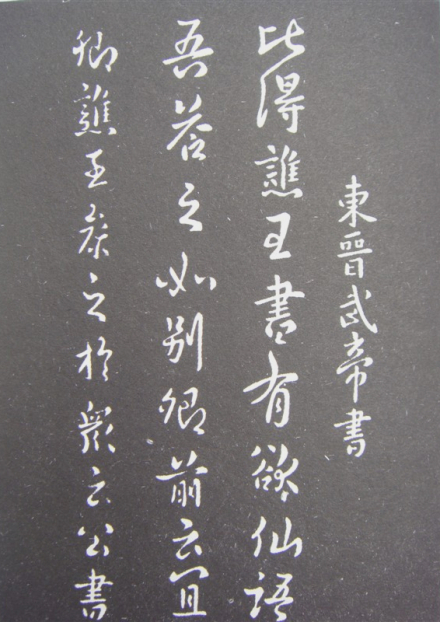 東晉武帝書
比得譙王書有欲仙語
吾荅之如别卿前云宜
卿譙王叅之於衆云公書